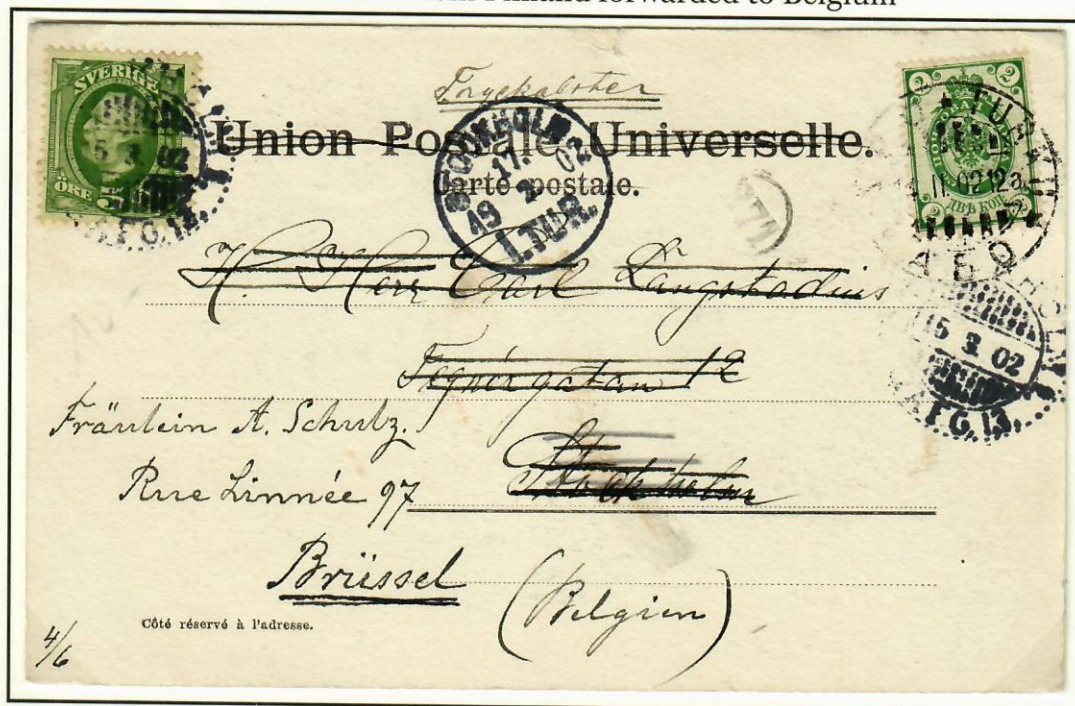 Finland forwarded to Belgium
SVERIGE
5
ÖRE
Union Postale Universelle.
Carte postale.
STOCKHOLM
17. 2 02
19
1.TUR.
2 2
ДВѢ КОП.
2 2
TURKU
ÅBO
АБО
15 3 02
15 3 02
AFG.13.
H. Herr Carl Langstadius
Tegnérgatan 12
Stockholm
Fräulein A. Schulz.
Rue Linnée 97
Brüssel
(Belgien)
Côté réservé à l'adresse.
4/6